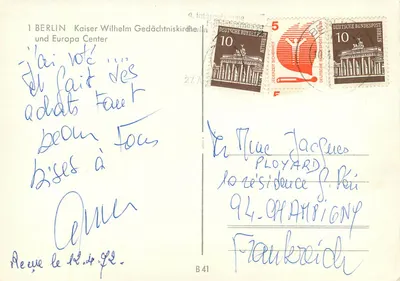 1 BERLIN Kaiser Wilhelm Gedächtniskirche
und Europa Center
J'ai voté ...
et fait des
achats tout
beau
bises à Tous
10
DEUTSCHE BUNDESPOST
BERLIN
5
5
10
DEUTSCHE BUNDESPOST
BERLIN
Mme Jacques
PLOYARD
10 résidence G. Péri
94-CHAMPIGNY
Frankreich
le 12.4.72.
B 41